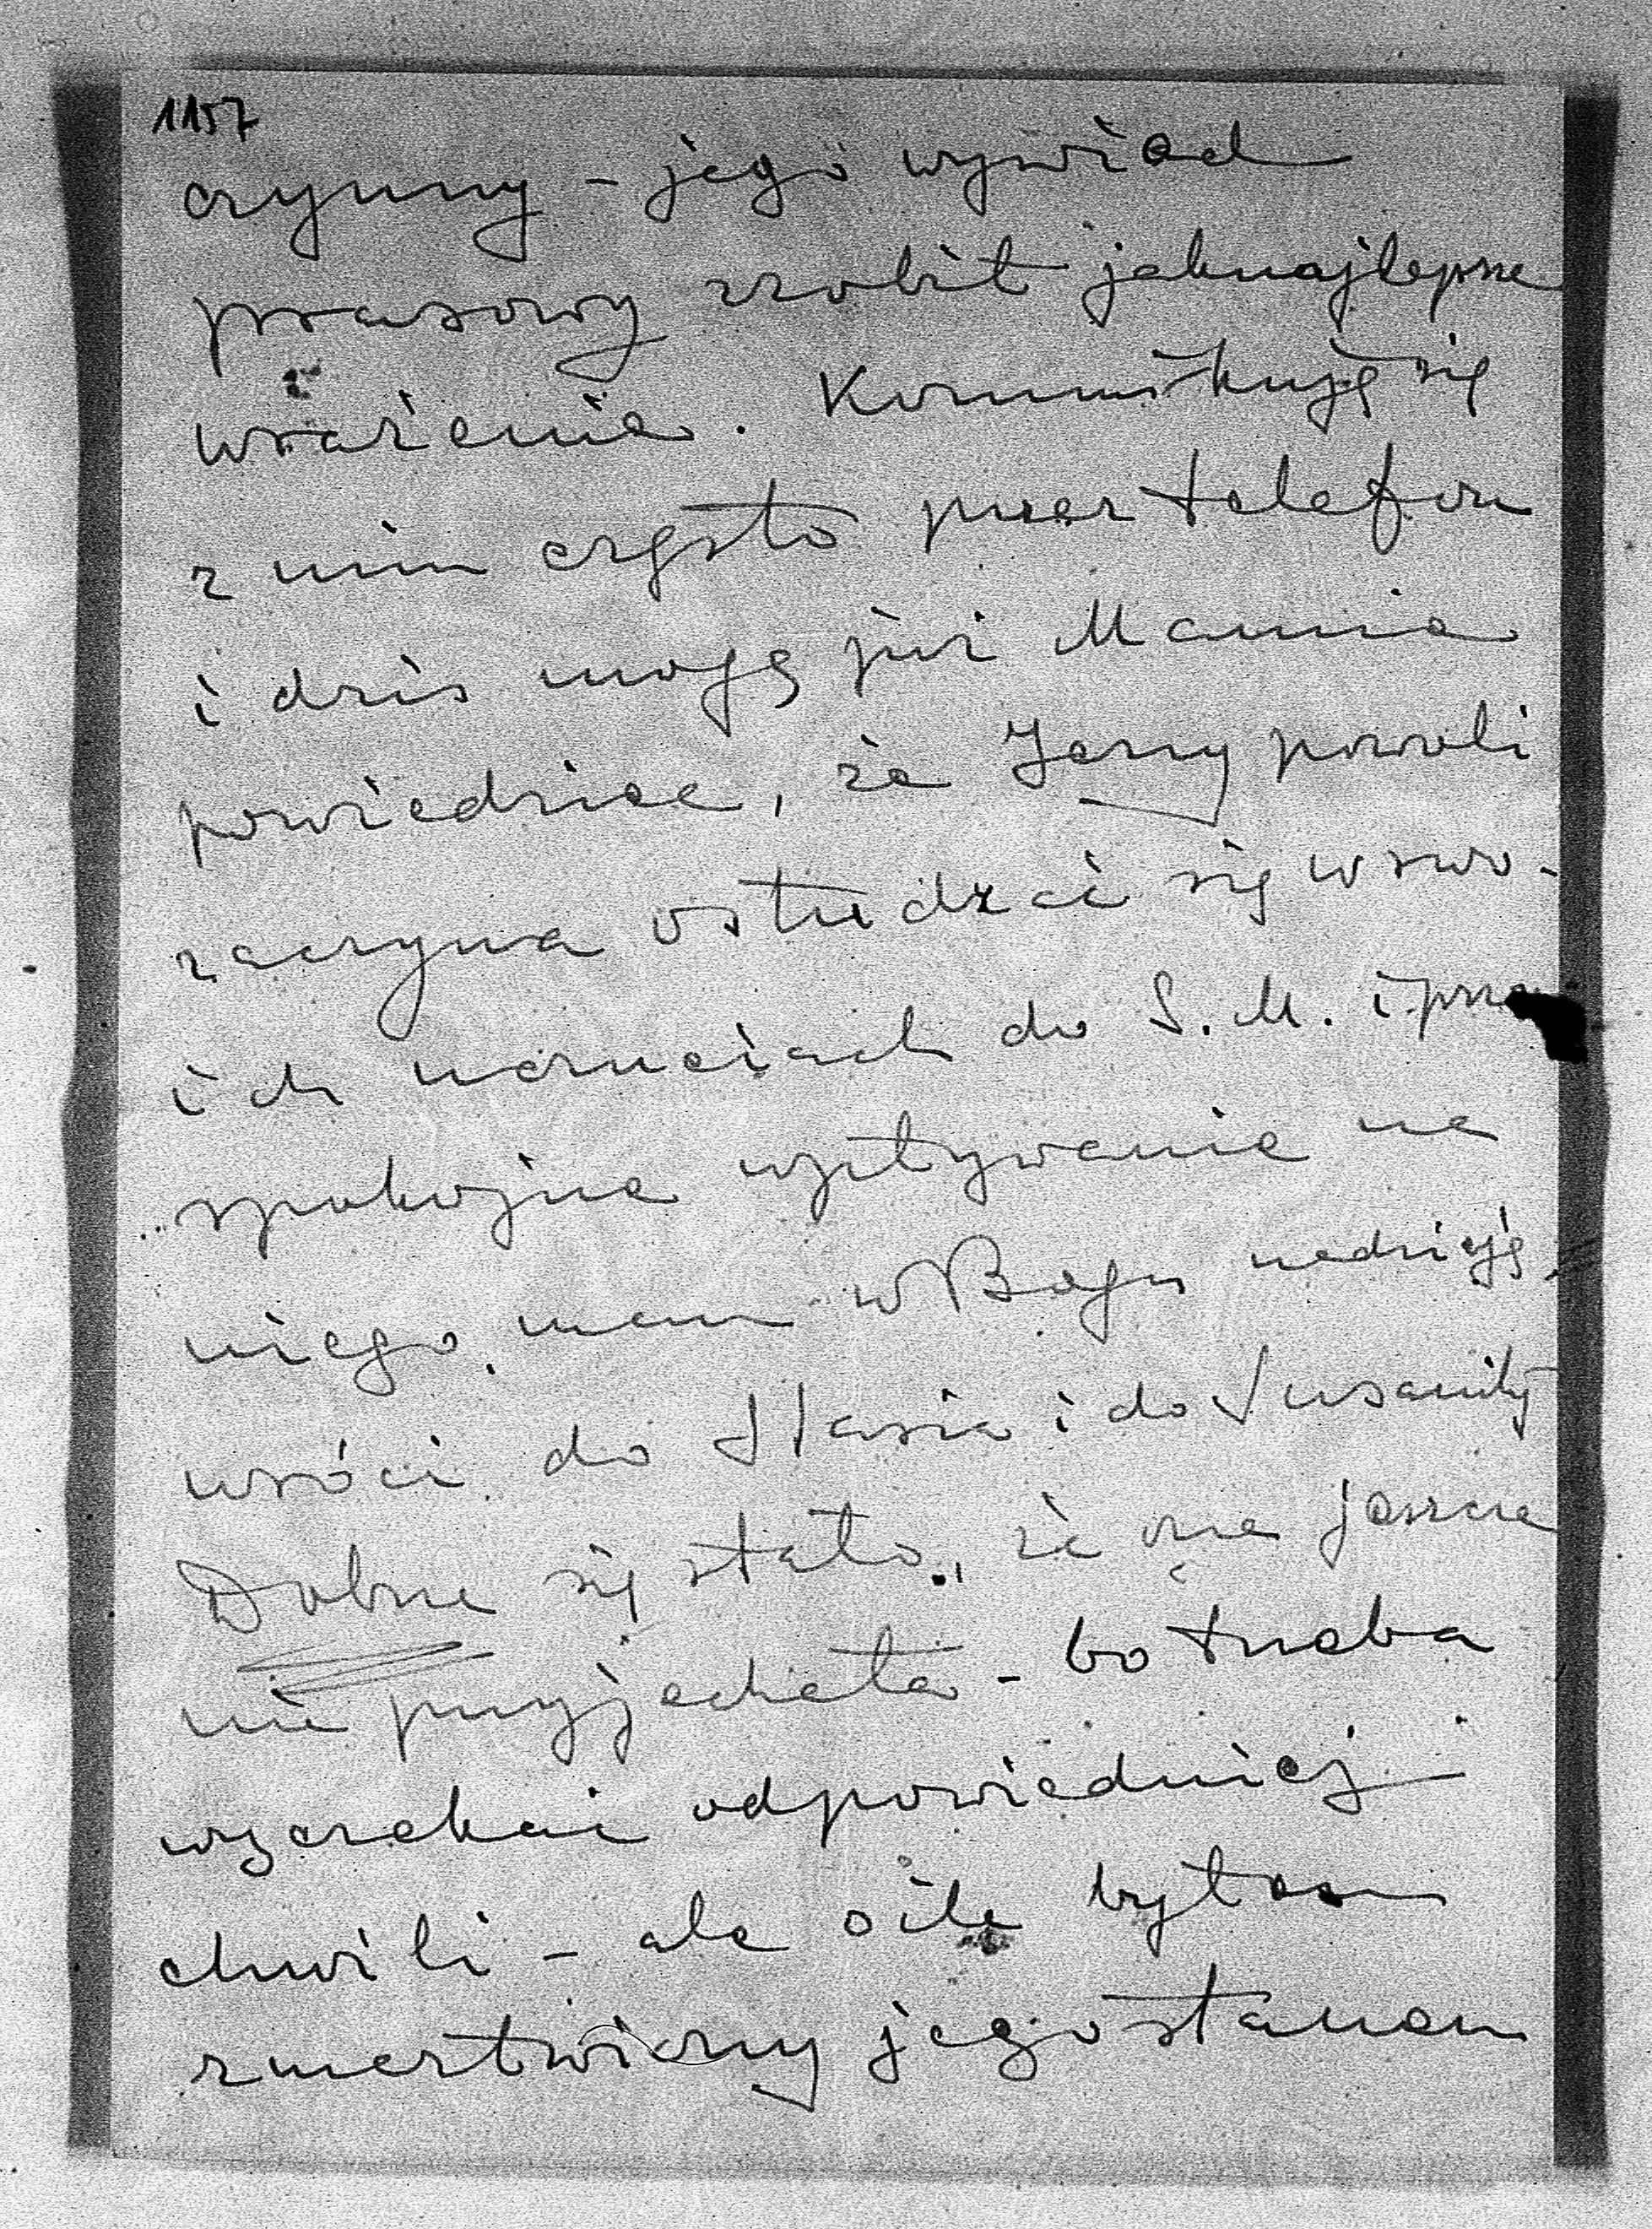 1157
czynny - jego wywiad
prasowy zrobił jaknajlepsze
wrażenie. Komunikuję się
z nim często przez telefon
i dziś mogę już Mamie
powiedzieć, że Jerzy powoli
zaczyna ostudzać się w swo-
ich uczuciach do S. M. i przez
spokojne wpływanie na
niego, mam w Bogu nadzieję,
wróci do Stasia i do Susanity
Dobrze się stało, że ona jeszcze
nie przyjechała - bo trzeba
wyczekać odpowiedniej
chwili - ale o ile byłem
zmartwiony jego stanem